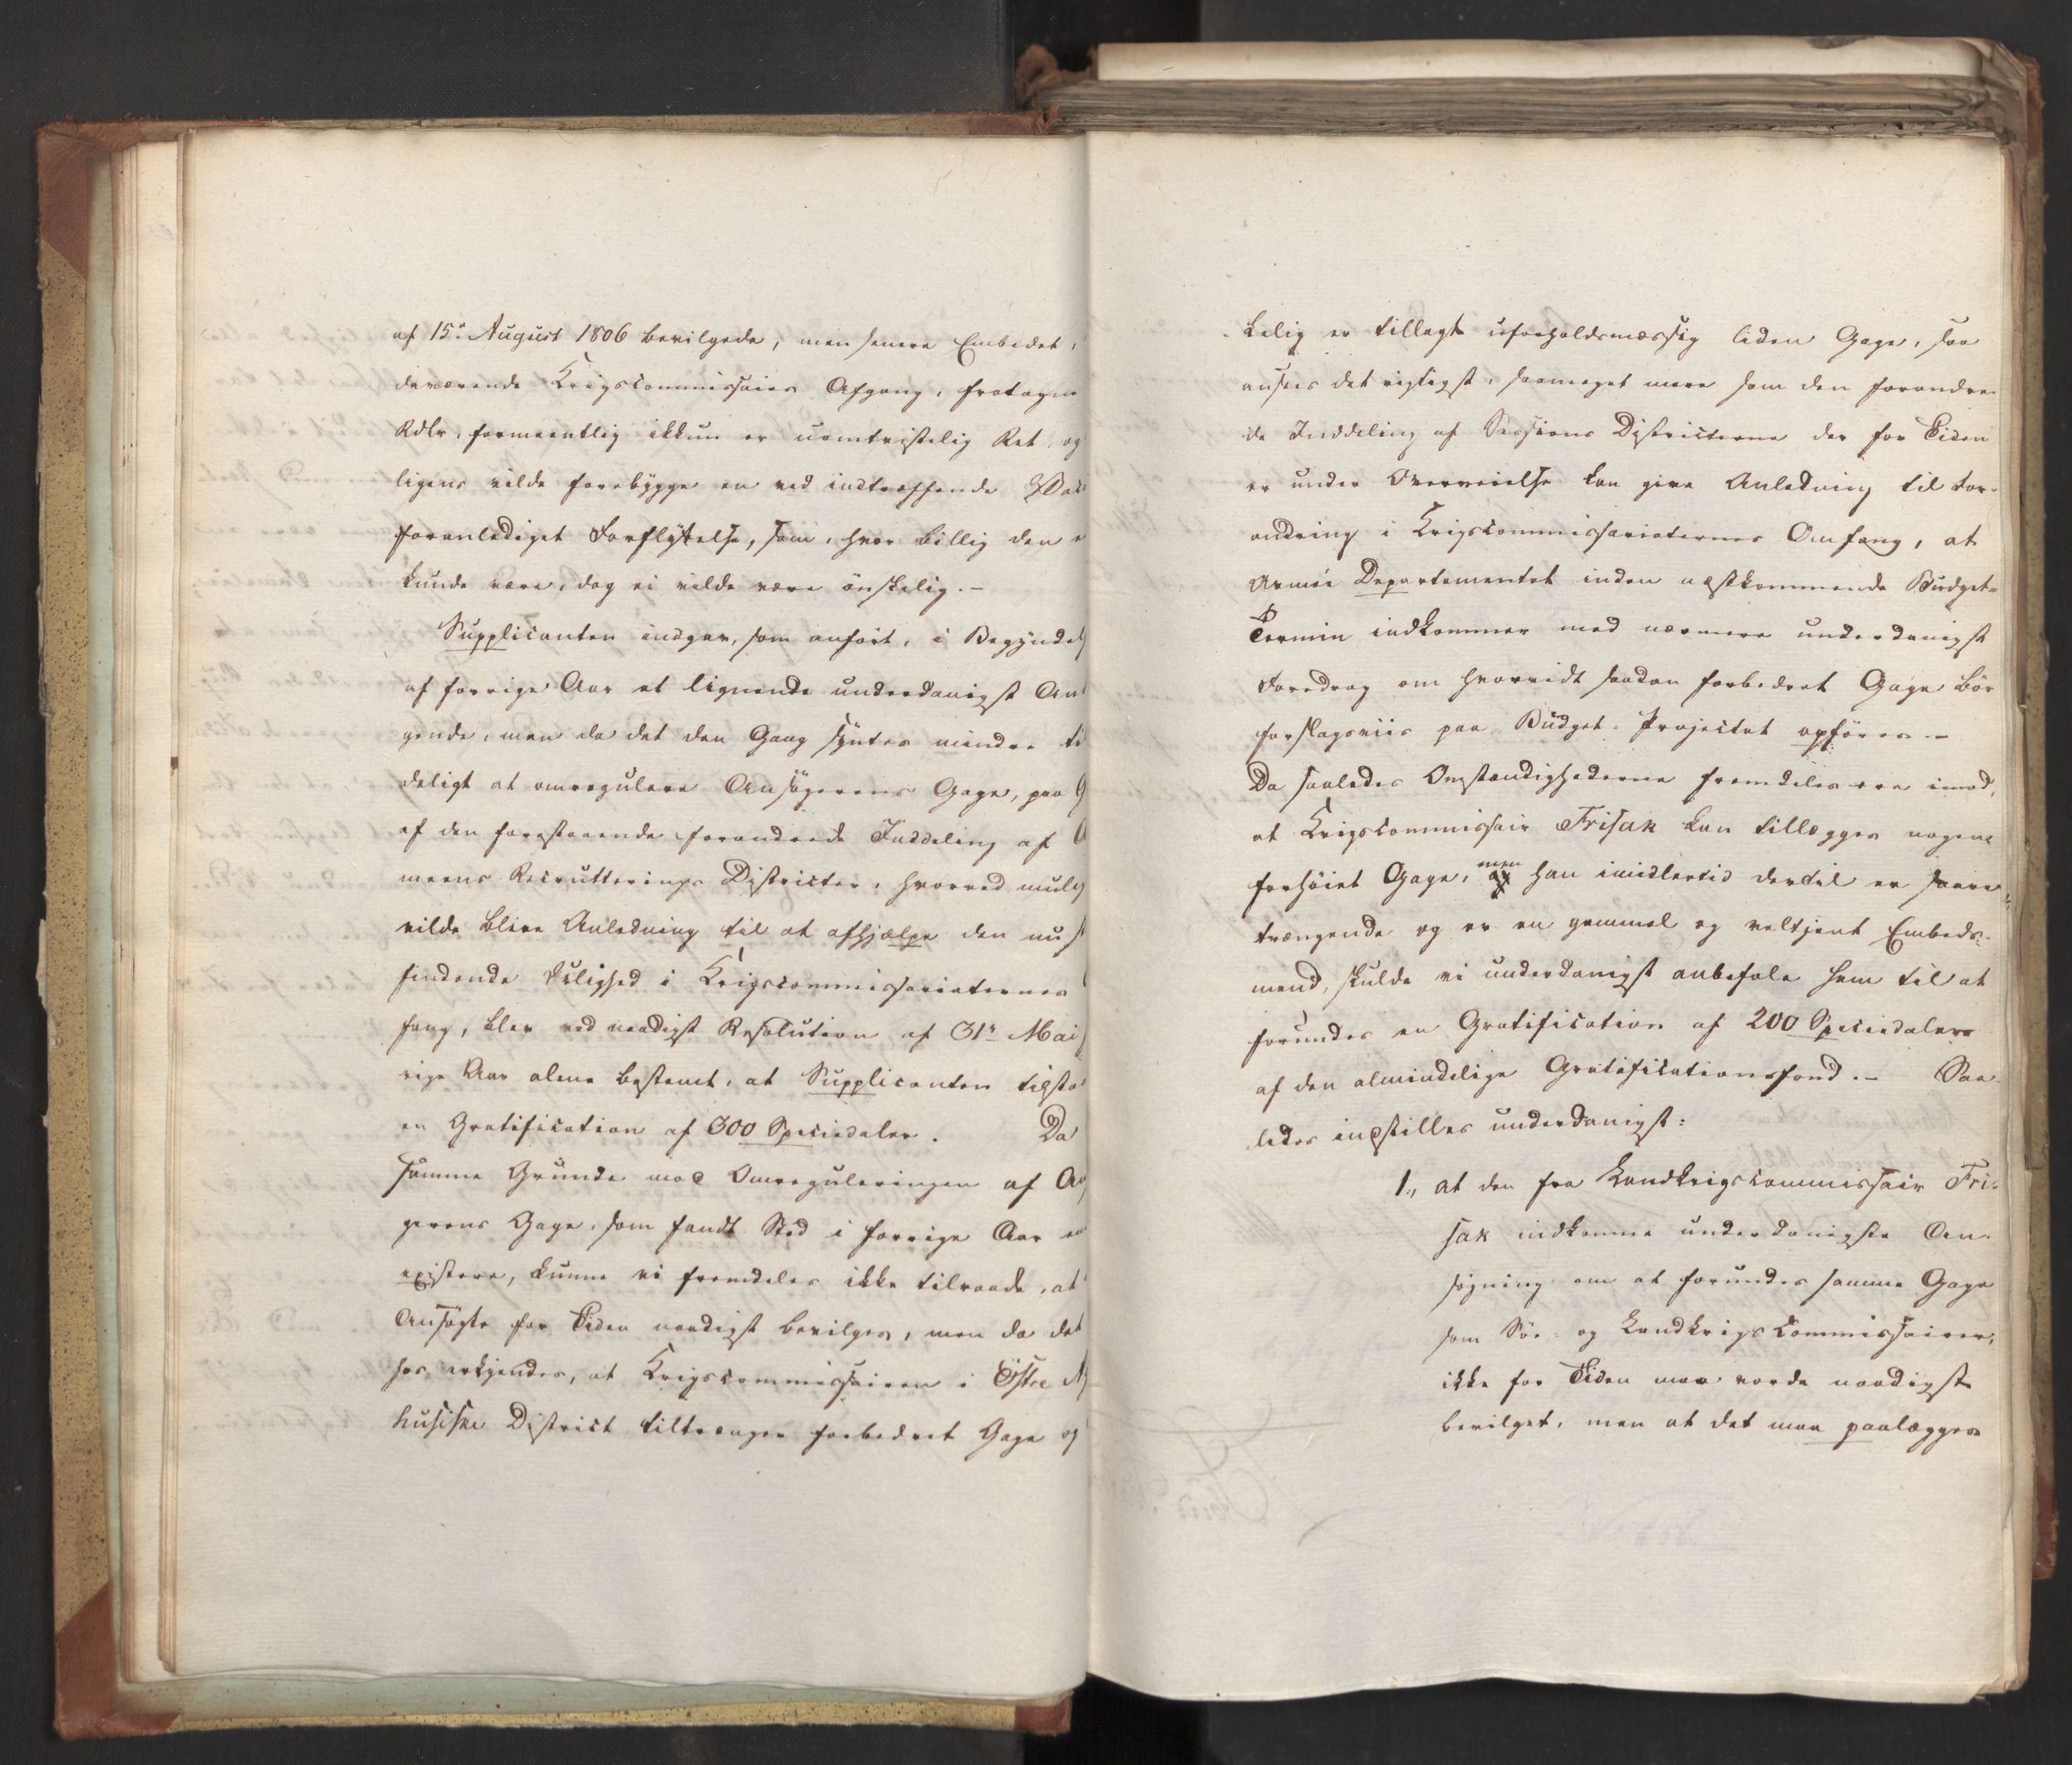 af 15de August 1806 bevilgede, men senere Embedet,
daværende Krigscommissairs Afgang, fratagne
Rdlr, formeentlig ikkun er uomtvistelig Ret, og
ligens vilde forebygge en ved indtræffende
foranlediget Forflyttelse, som, hvor billig den e
kunde være, dog ei vilde være önskelig. -
Supplicanten indgav, som anfört, i Begyndels
af forrige Aar et lignende underdanigst An
gende, men da det den Gang syntes mindre ti
deligt at omregulere Ansögerens Gage, paa G
af den forestaaende forandrede Inddeling af A
meens Recrutterings Districter, hvorved mulig
vilde blive Anledning til at afhjælpe den nu s
findende Ulighed i Krigscommissariaternes
fang, blev ved naadigst Resolution af 31te Mai f
rige Aar alene bestemt, at Supplicanten tilsto
en Gratification af 300 Speciedaler. Da
samme Grunde mod Omreguleringen af An
gerens Gage, som fandt Sted i forrige Aar en
existere, kunne vi fremdeles ikke tilraade, at
Ansögte for Tiden naadigst bevilges, men da det
hos erkjendes, at Krigscommissairen i Östre A
husiske District tiltrænger forbedret Gage og
kelig er tillagt uforholdsmæssig liden Gage, saa
ansees det rigtigst, saameget mere som den forandre-
de Inddeling af Sessions Districterne der for Tiden
er under Overveielse kan give Anledning til For-
andring i Krigscommissariaternes Omfang, at
Armée Departementet inden næstkommende Budget-
Termin indkommer med nærmere underdanigst
Foredrag om hvorvidt saadan forbedret Gage bör
forslagsviis paa Budget-Projectet opföres. -
Da saaledes Omstændighederne fremdeles ere imod,
at Krigscommissair Frisak kan tillægges nogen
forhöiet Gage, men han imidlertid dertil er saare
trængende og er en gammel og veltjent Embeds-
mand, skulde vi underdanigst anbefale ham til at
forundes en Gratification af 200 Speciedaler
af den almindelige Gratificationsfond. - Saa-
ledes indstilles underdanigst:
1., at den fra Landkrigscommissair Fri-
sak indkomne underdanigste An-
søgning om at forundes samme Gage
som Söe- og Landkrigscommissairer,
ikke for Tiden maa vorde naadigst
bevilget, men at det maa paalægges